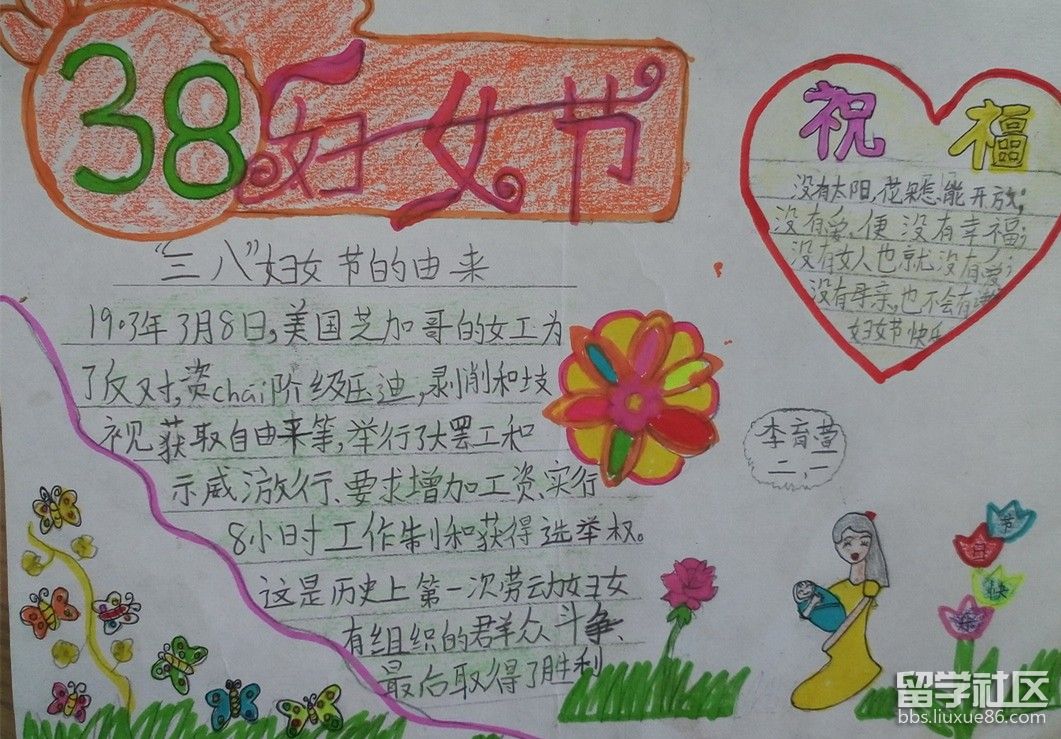 38妇女节
"三八"妇女节的由来
1903年3月8日,美国芝加哥的女工为
了反对,资chai阶级压迪,剥削和歧
视获取自由来等,举行了大罢工和
示威游行、要求增加工资、实行
8小时工作制和获得选举权。
这是历史上第一次劳动妇女
有组织的群众斗争、
最后取得了胜利
祝福
没有太阳,花朵怎能开放;
没有爱,便没有幸福;
没有女人也就没有爱;
没有母亲,也不会有
妇女节快乐
李育萱
二,一
节
日
快
乐
留学社区
bbs.liuxue86.com